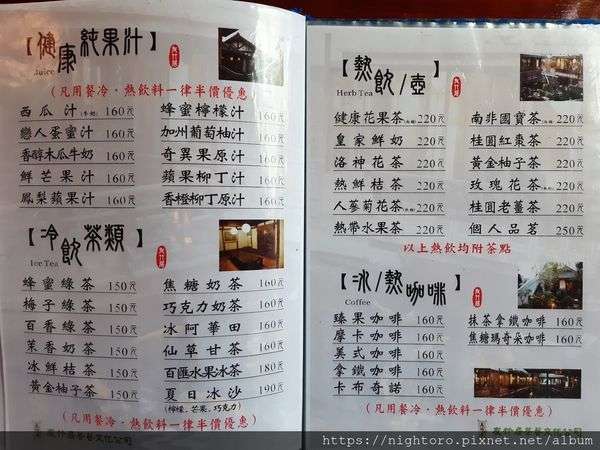 【健康純果汁】
Juice
(凡用餐冷、熱飲料一律半價優惠
西瓜汁 160元
戀人蛋蜜汁 160元
香醇木瓜牛奶 160元
鮮芒果汁 160元
鳳梨蘋果汁 160元
蜂蜜檸檬汁 160元
加州葡萄柚汁 160元
奇異果原汁 160元
蘋果柳丁汁 160元
香橙柳丁原汁 160元
【冷飲茶類】
Ice Tea
蜂蜜綠茶 150元
梅子綠茶 150元
百香綠茶 150元
茉香奶茶 150元
冰鮮桔茶 150元
黃金柚子茶 150元
焦糖奶茶 160元
巧克力奶茶 160元
冰阿華田 160元
仙草甘茶 160元
百匯水果冰茶 180元
夏日冰沙 190元
(檸檬、芒果、巧克力)
(凡用餐冷、熱飲料一律半價優惠)
【熱飲/壺】
Herb Tea
健康花果茶 220元
皇家鮮奶 220元
洛神花茶 220元
熱鮮桔茶 220元
人蔘菊花茶 220元
熱帶水果茶 220元
南非國寶茶 220元
桂圓紅棗茶 220元
黃金柚子茶 220元
玫瑰花茶 220元
桂圓老薑茶 220元
個人品茗 250元
以上熱飲均附茶點
【冰/熱咖啡】
Coffee
臻果咖啡 160元
摩卡咖啡 160元
美式咖啡 160元
拿鐵咖啡 160元
卡布奇諾 160元
抹茶拿鐵咖啡 160元
焦糖瑪奇朵咖啡 160元
(凡用餐冷、熱飲料一律半價優惠)
https://nightoro.pixnet.net/album